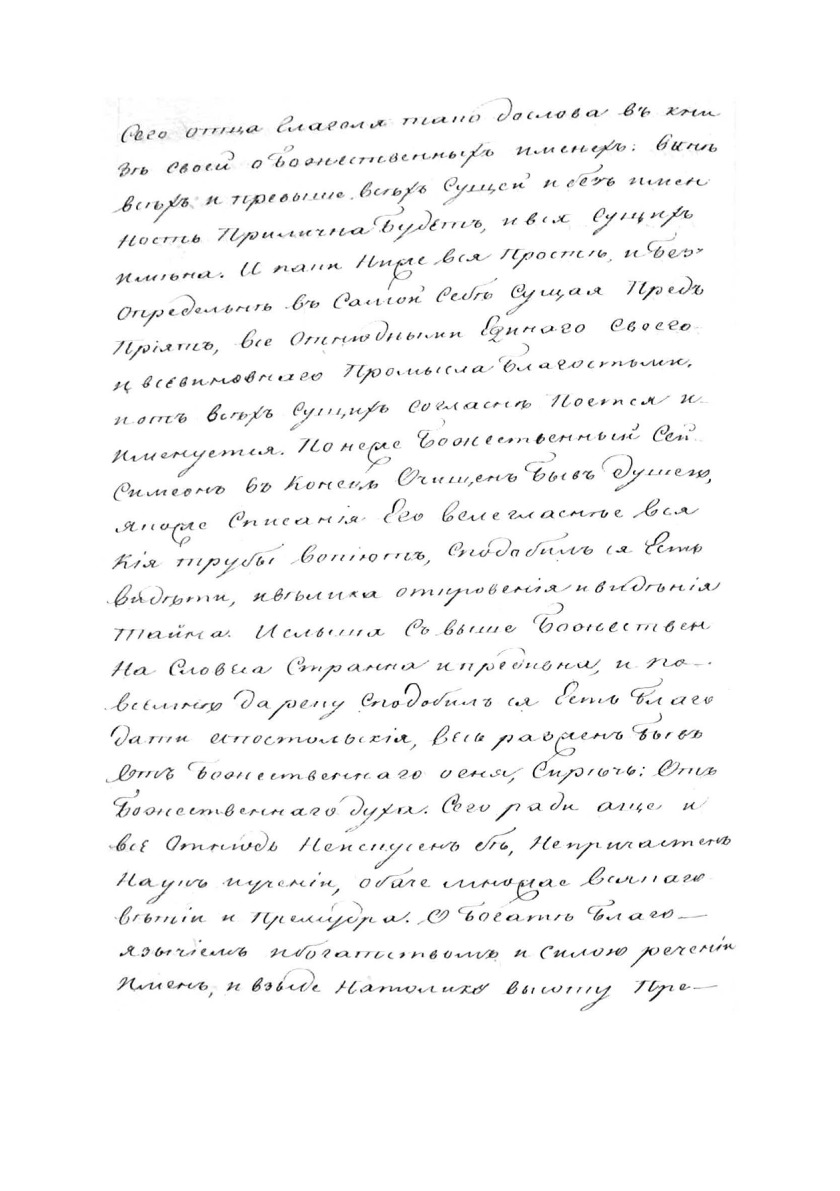 Сего отца глаголя тако дослова въ кни
зѣ своей о Божественныхъ именехъ: винѣ
всѣхъ и превыше всѣхъ Сущей и безъ имен
ность Прилична Будетъ, и вся Сущихъ
имѣна. И паки Ниже вся Простѣ, и Без-
определьнѣ въ Самой Себѣ Сущая Предъ
Пріятъ, все Отнюдными Единаго Своего
и всевиновнаго Промысла Благостьми,
и отъ всѣхъ Сущихъ согласнѣ Поется и
Именуется. Понеже Божественный Сей
Симеонъ въ Конецъ Очищенъ Бывъ Душею,
якоже Списанія Его велегласнѣе вся
кія трубы вопіютъ, Сподобилъ ся Есть
видѣти, и вѣлика откровенія и видѣнія
Тайна. И слыша Съ выше Божествен
На Словеса Странна и предивна, и по-
всемною дарену Сподобилъ ся Есть Благо
дати Апостольскія, весь разженъ Бывъ
Отъ Божественнаго огня, Сирѣчь: Отъ
Божественнаго духа. Сего ради аще и
все Отнюдь Неискусенъ бѣ, Непричастенъ
Наукъ и ученіи, обаче множае всякаго
вѣтіи и Премудра. О Богатѣ Благо-
язычіемъ и богатствомъ и силою реченіи
Именъ, и взыде Натолику высоту Пре-